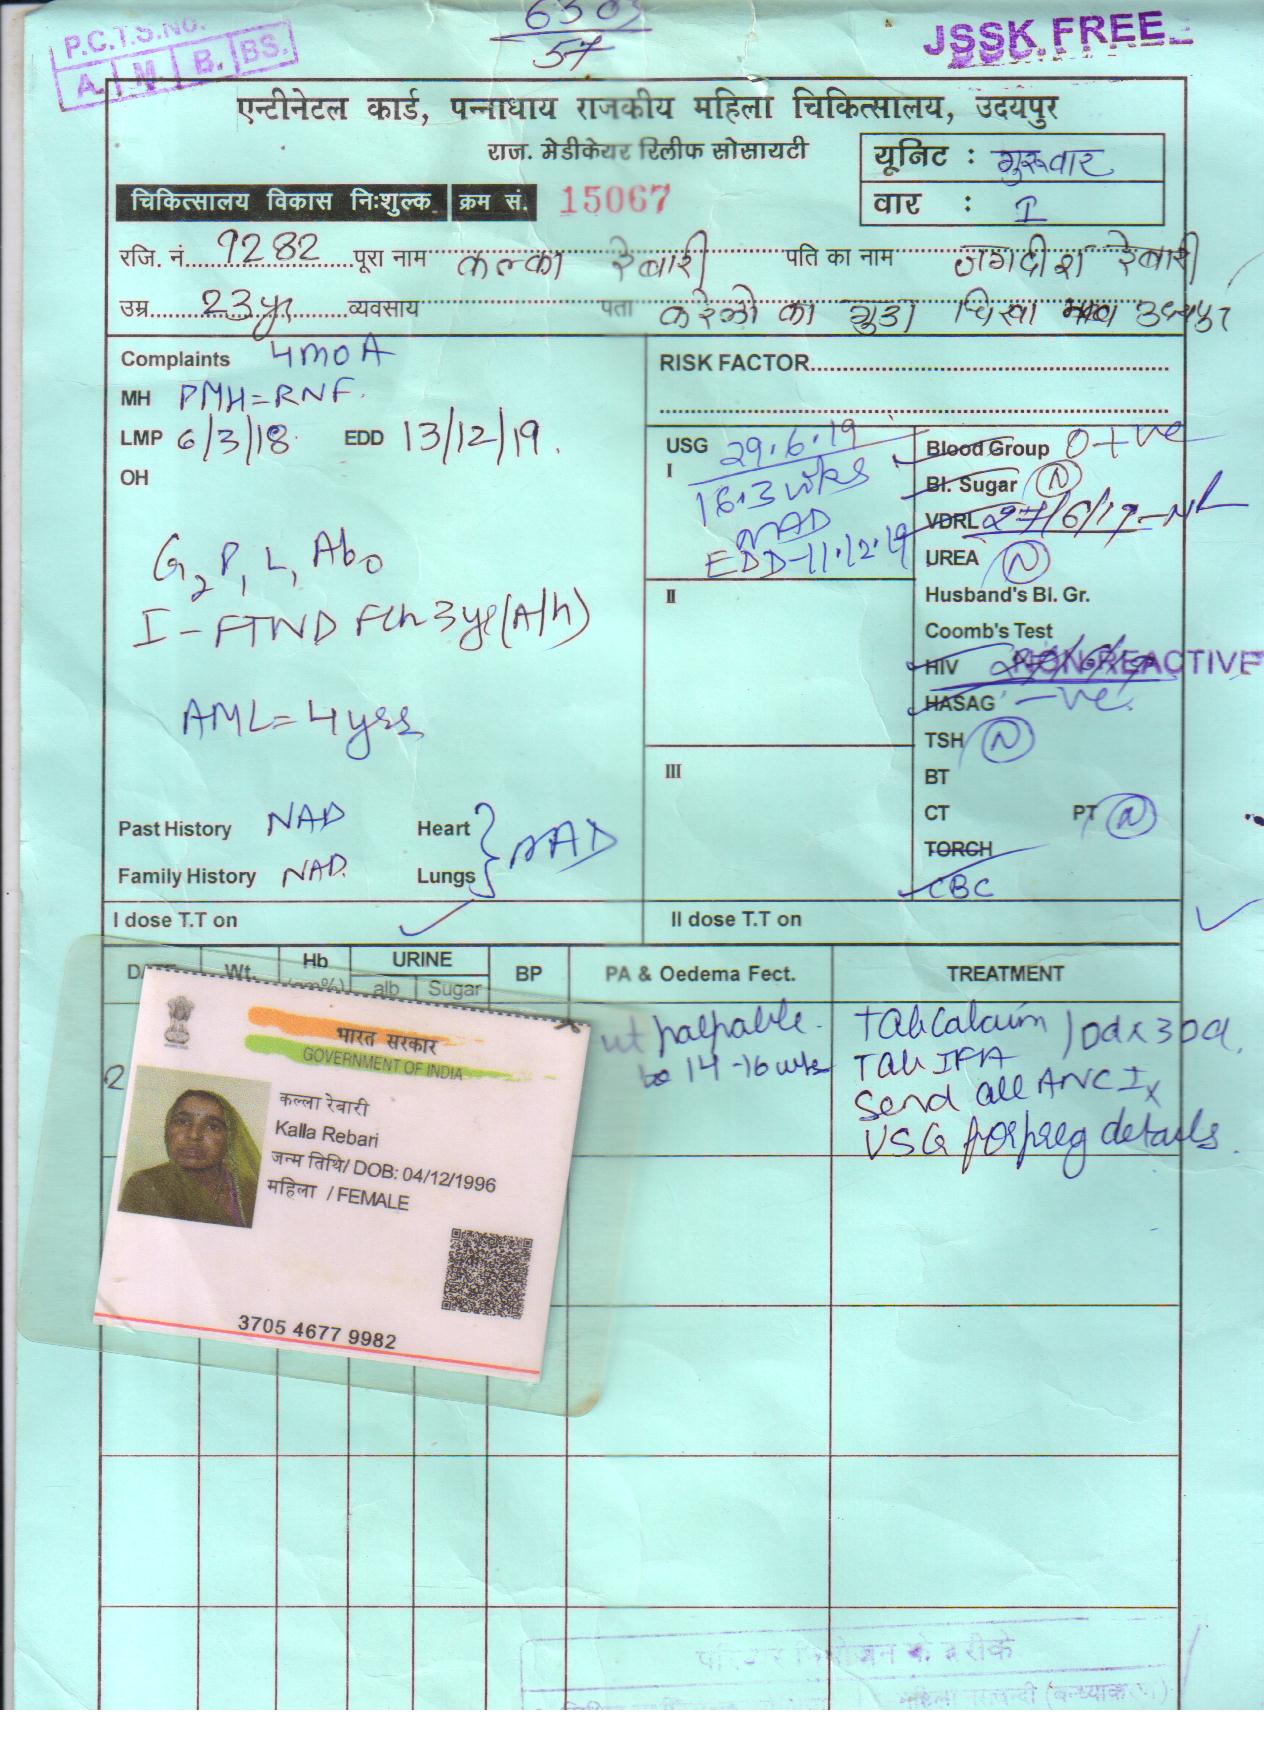 6303
57
P.C.T.S.NO.
A. M. B. BS.
JSSK FREE
एन्टीनेटल कार्ड, पन्नाधाय राजकीय महिला चिकित्सालय, उदयपुर
राज. मेडीकेयर रिलीफ सोसायटी
यूनिट : गुरूवार
वार : I
चिकित्सालय विकास निःशुल्क क्रम सं. 15067
रजि. नं. 9282 पूरा नाम कल्का रेबारी पति का नाम जगदीश रेबारी
उम्र 23yr व्यवसाय पता करेलो का गुडा
Complaints 4moA
MH PMH=RNF.
LMP 6/3/18 EDD 13/12/19.
OH
G2 P1 L1 Ab0
I - FTND Fch 3yr (A/h)
AML = 4 yrs
Past History NAD
Family History NAD.
Heart
Lungs
NAD
RISK FACTOR
USG 29.6.19
I 16.3 wks
NAD
EDD-11.12.19
II
III
Blood Group O+ve
Bl. Sugar N
VDRL 27/6/19-NR
UREA N
Husband's Bl. Gr.
Coomb's Test
HIV NON-REACTIVE
HASAG -ve.
TSH N
BT
CT PT N
TORCH
CBC
I dose T.T on II dose T.T on
Wt. Hb URINE BP PA & Oedema Fect. TREATMENT
alb Sugar
ut palpable. Tab Calcium
14-16 wks Tab IFA
1od x 30d.
Send all ANC Ix
USG for preg details.
भारत सरकार
GOVERNMENT OF INDIA
कल्ला रेबारी
Kalla Rebari
जन्म तिथि/ DOB: 04/12/1996
महिला / FEMALE
3705 4677 9982